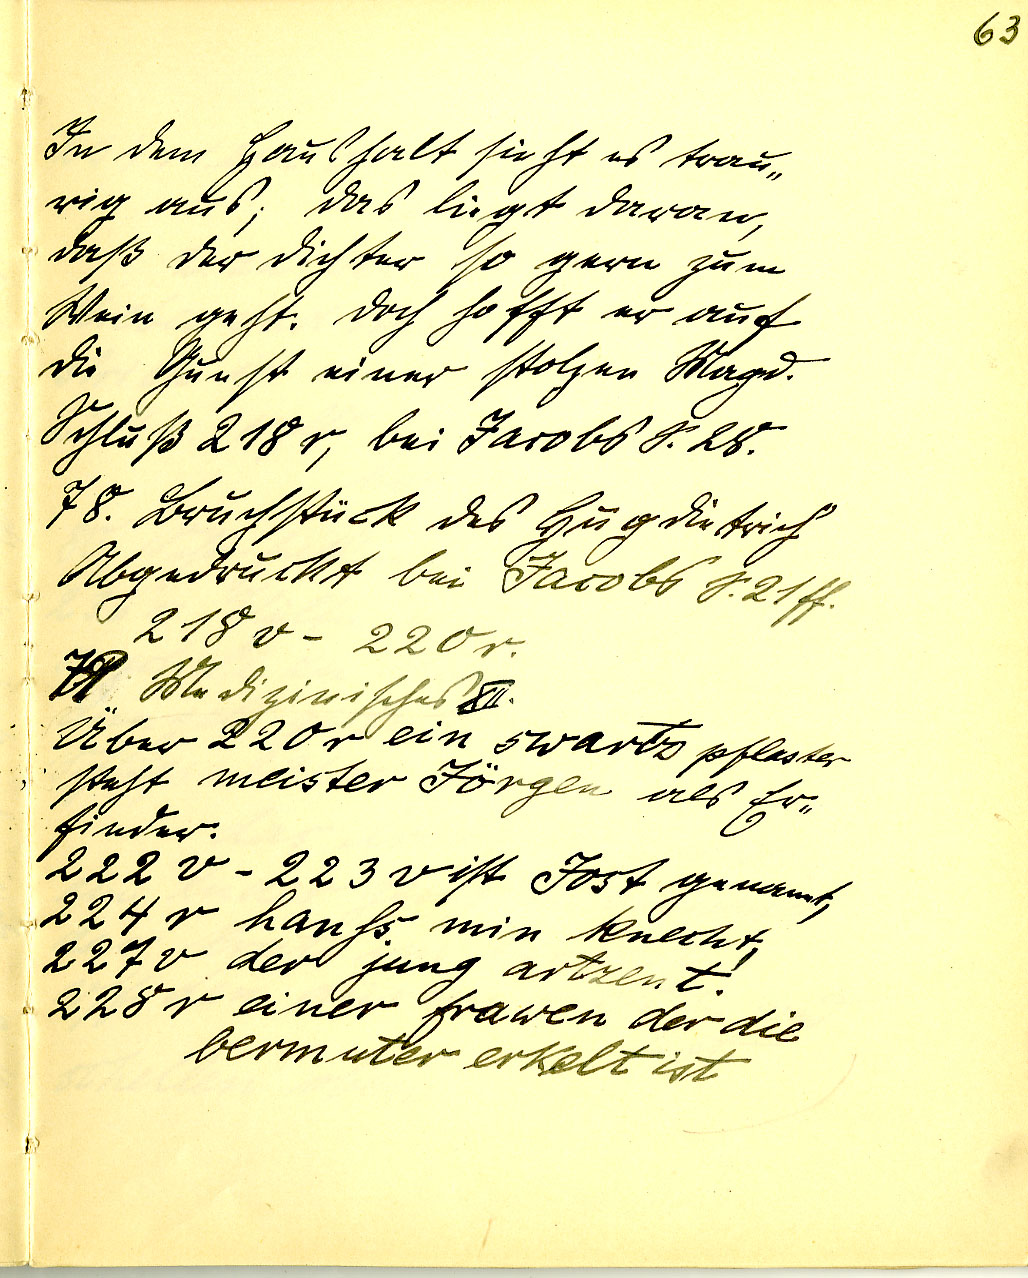 63
In dem Haushalt sieht es trau„
rig aus; das liegt daran,
daß der Dichter so gern zum
Wein geht. Doch hofft er auf
die Gunst einer stolzen Magd.
Schluß 218 r, bei Jacobs S. 28.
78. Bruchstück des Hugdietrich
Abgedruckt bei Jacobs S. 21 ff.
218 v - 220 r.
79 Medizinisches XII.
Über 220 r ein swartz pflaster
steht meister Jörgen als Er„
finder.
222 v - 223 v ist Jost genannt,
224 r hanss min knecht,
227 v der jung artzent.
228 r einer frawen der die
bermuter erkelt ist